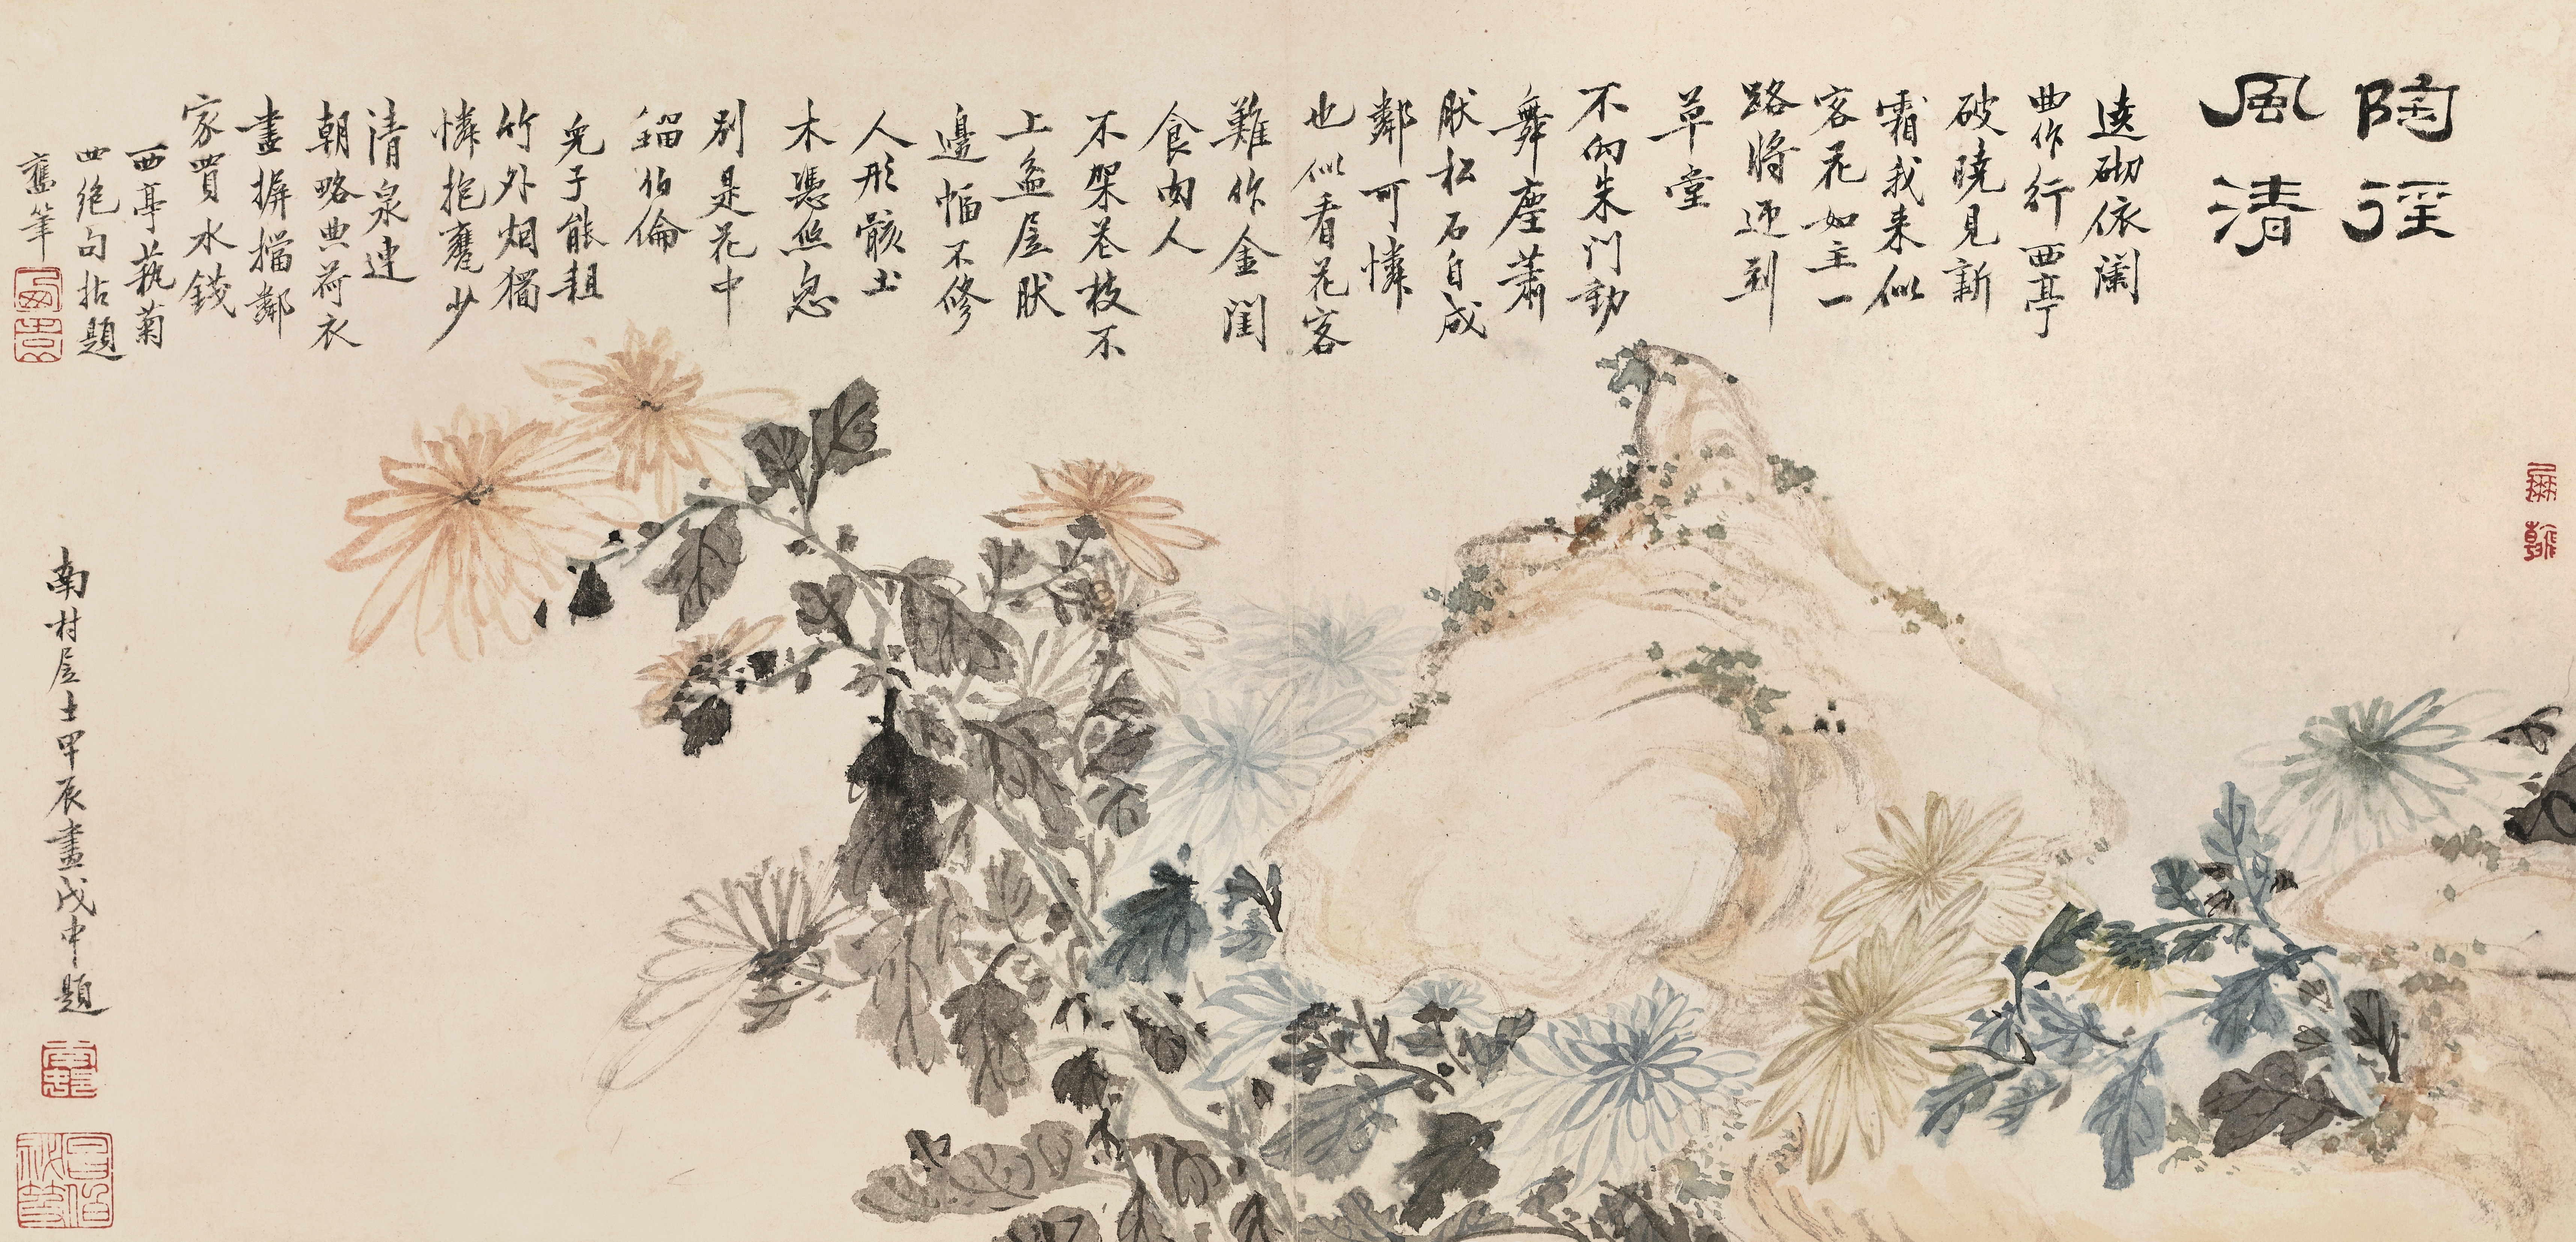 陶徑
風清
遶砌依闌
曲作行西亭
破曉見新
霜我来似
客花如主一
路將迎到
草堂
不向朱門動
舞塵蕭
肰松石自成
鄰可憐
也似看花客
難作金閨
食肉人
不架枝不
上盆居肰
邊幅不修
人形骸土
木憑
別是花中
鍤伯倫
兒子能耡
竹外烟獨
憐抱甕少
清泉連
朝略典荷衣
盡摒擋鄰
家買水錢
西亭蓺菊
四絶句拈題
舊筆
南村居士甲辰畫戊申題